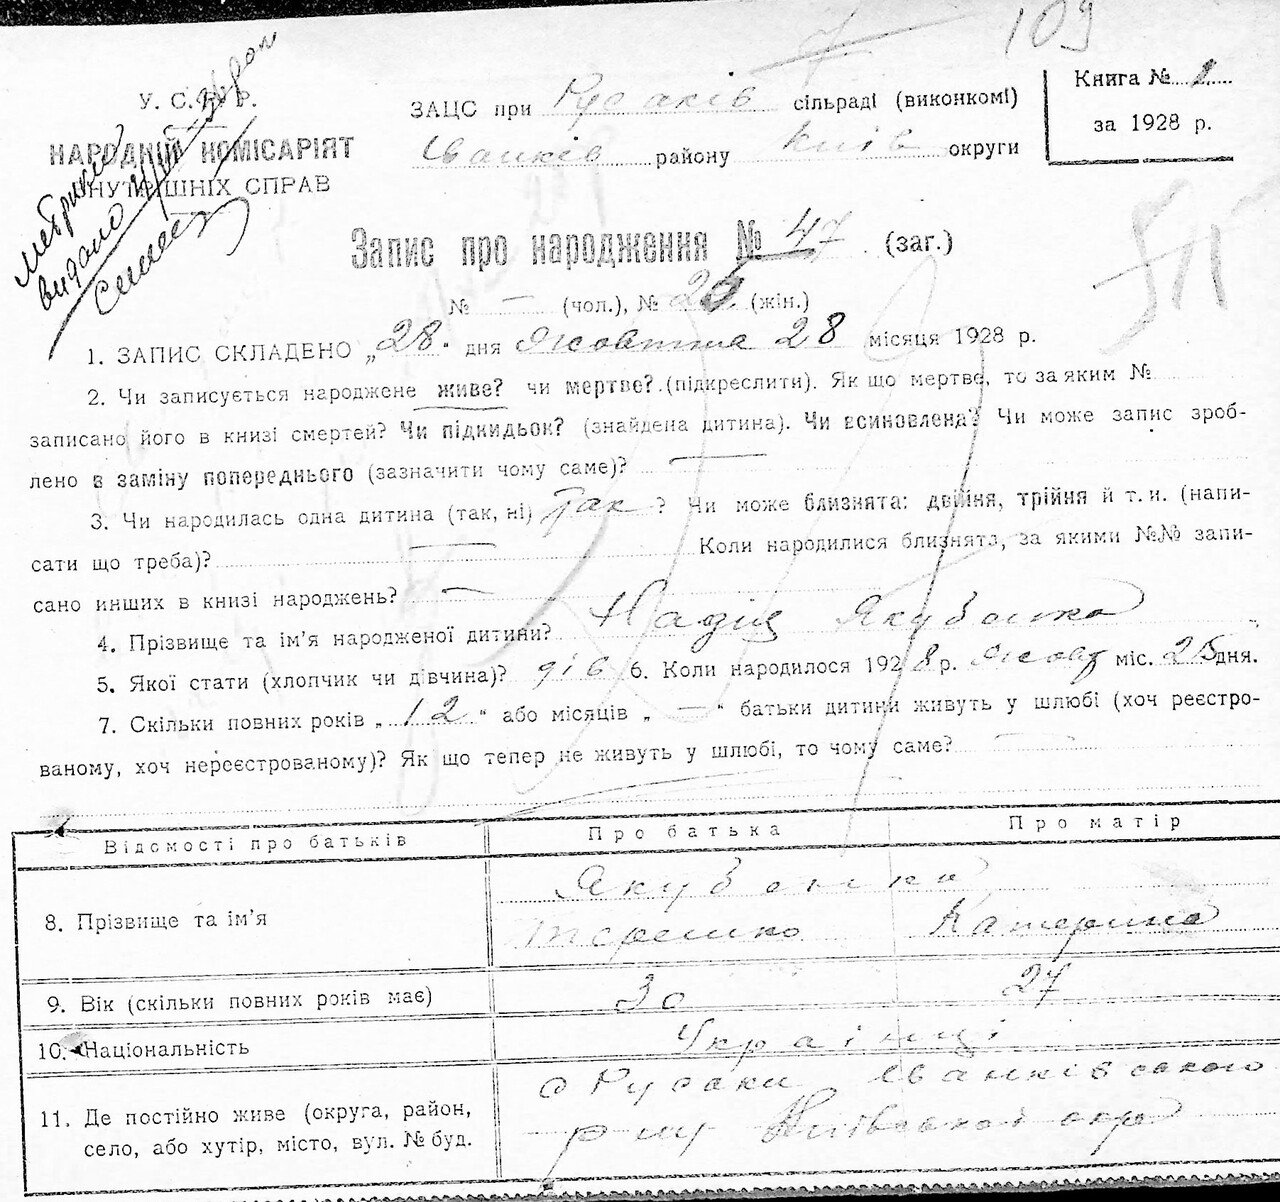 109
У. С. Р. Р.
НАРОДНІЙ КОМІСАРІЯТ
ВНУТРІШНІХ СПРАВ
Метрика
видано
ЗАЦС при Русаків сільраді (виконкомі)
Іванків району Київ округи
Книга № 1
за 1928 р.
Запис про народження № 47 (заг.)
№ — (чол.), № 25 (жін.)
1. ЗАПИС СКЛАДЕНО „28" дня Жовтня 28 місяця 1928 р.
2. Чи записується народжене живе? чи мертве? (підкреслити). Як що мертве, то за яким №
записано його в книзі смертей? Чи підкидьок? (знайдена дитина). Чи всиновлена? Чи може запис зроб-
лено в заміну попереднього (зазначити чому саме)? —
3. Чи народилась одна дитина (так, ні) так ? Чи може близнята: двійня, трійня й т. и. (напи-
сати що треба)? — Коли народилися близнята, за якими №№ запи-
сано инших в книзі народжень? —
4. Прізвище та ім'я народженої дитини? Надія Якубенко
5. Якої стати (хлопчик чи дівчина)? дів 6. Коли народилося 1928 р. Жовт міс. 25 дня.
7. Скільки повних років „ 12 " або місяців „ — " батьки дитини живуть у шлюбі (хоч реєстро-
ваному, хоч нереєстрованому)? Як що тепер не живуть у шлюбі, то чому саме? —
Відомості про батьків Про батька Про матір
8. Прізвище та ім'я Якубенко
Терешко Катерина
9. Вік (скільки повних років має) 30 27
10. Національність Українці
11. Де постійно живе (округа, район, с Русаки Іванківського
село, або хутір, місто, вул. № буд. р ну Київської окр